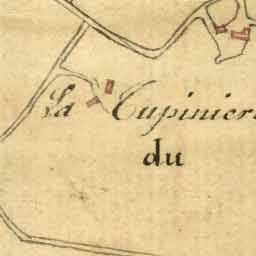 La Tupinier
du